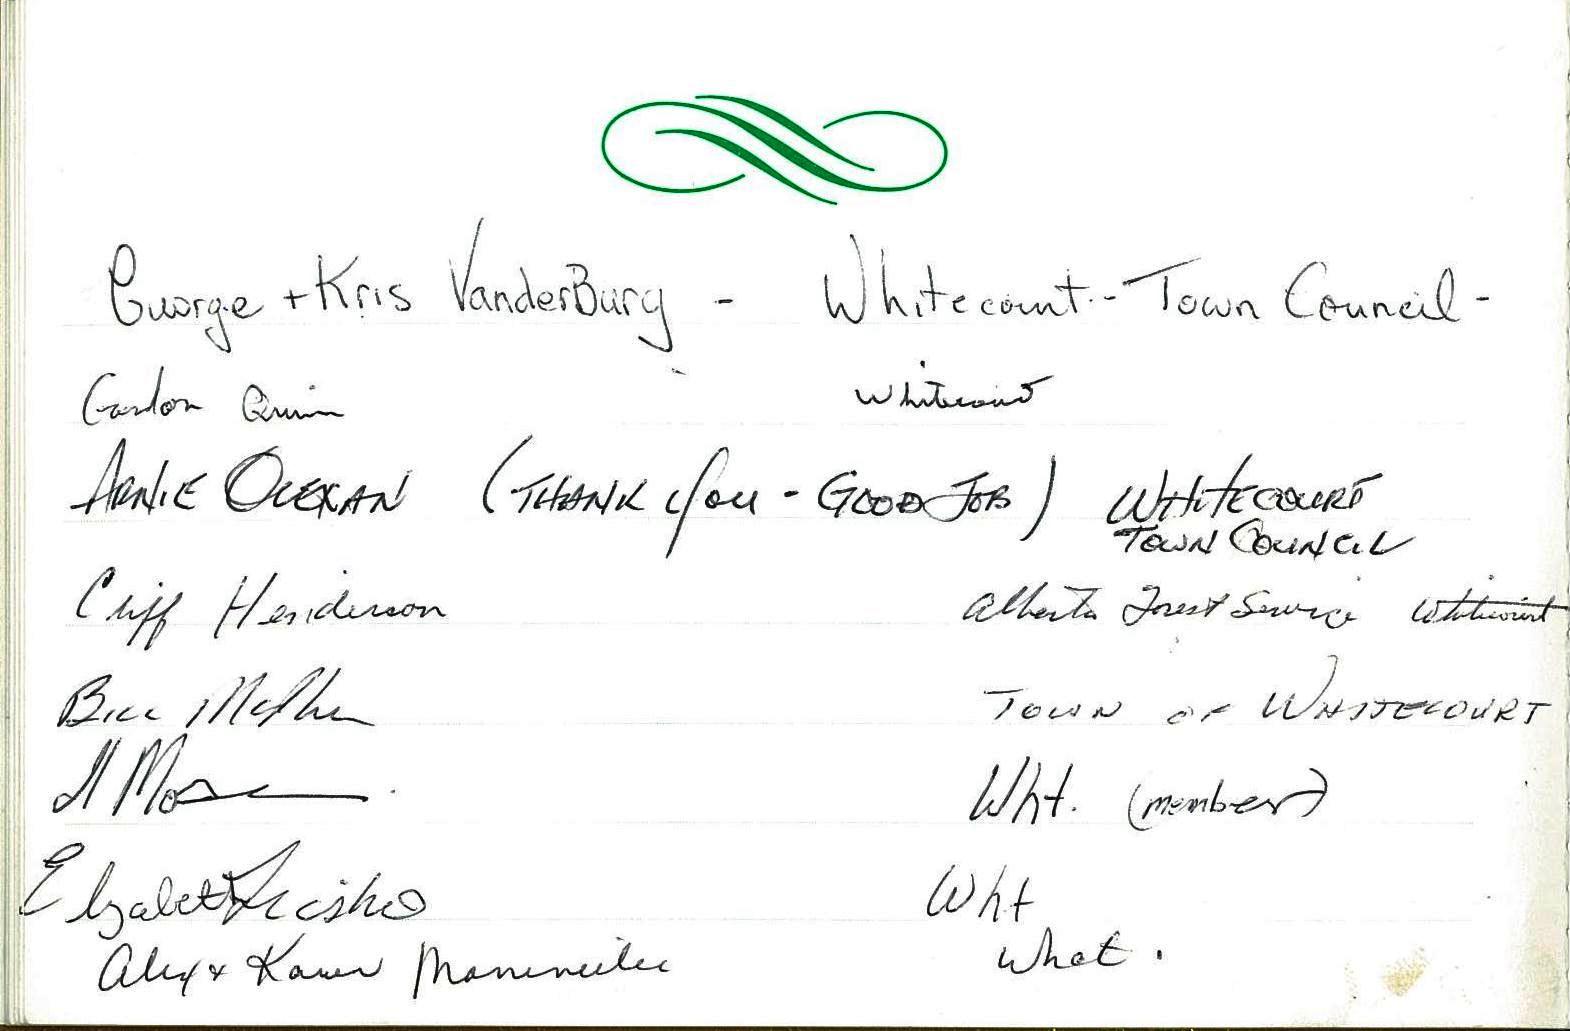 George + Kris VanderBurg - Whitecourt - Town Council -
Gordon Quinn Whitecourt
ARNIE OLEXAN (THANK YOU - GOOD JOB) WHITECOURT
TOWN COUNCIL
Cliff Henderson Alberta Forest Service Whitecourt
Bill TOWN OF WHITECOURT
Wht. (member)
Elizabeth Wht
Alex + Karen What.